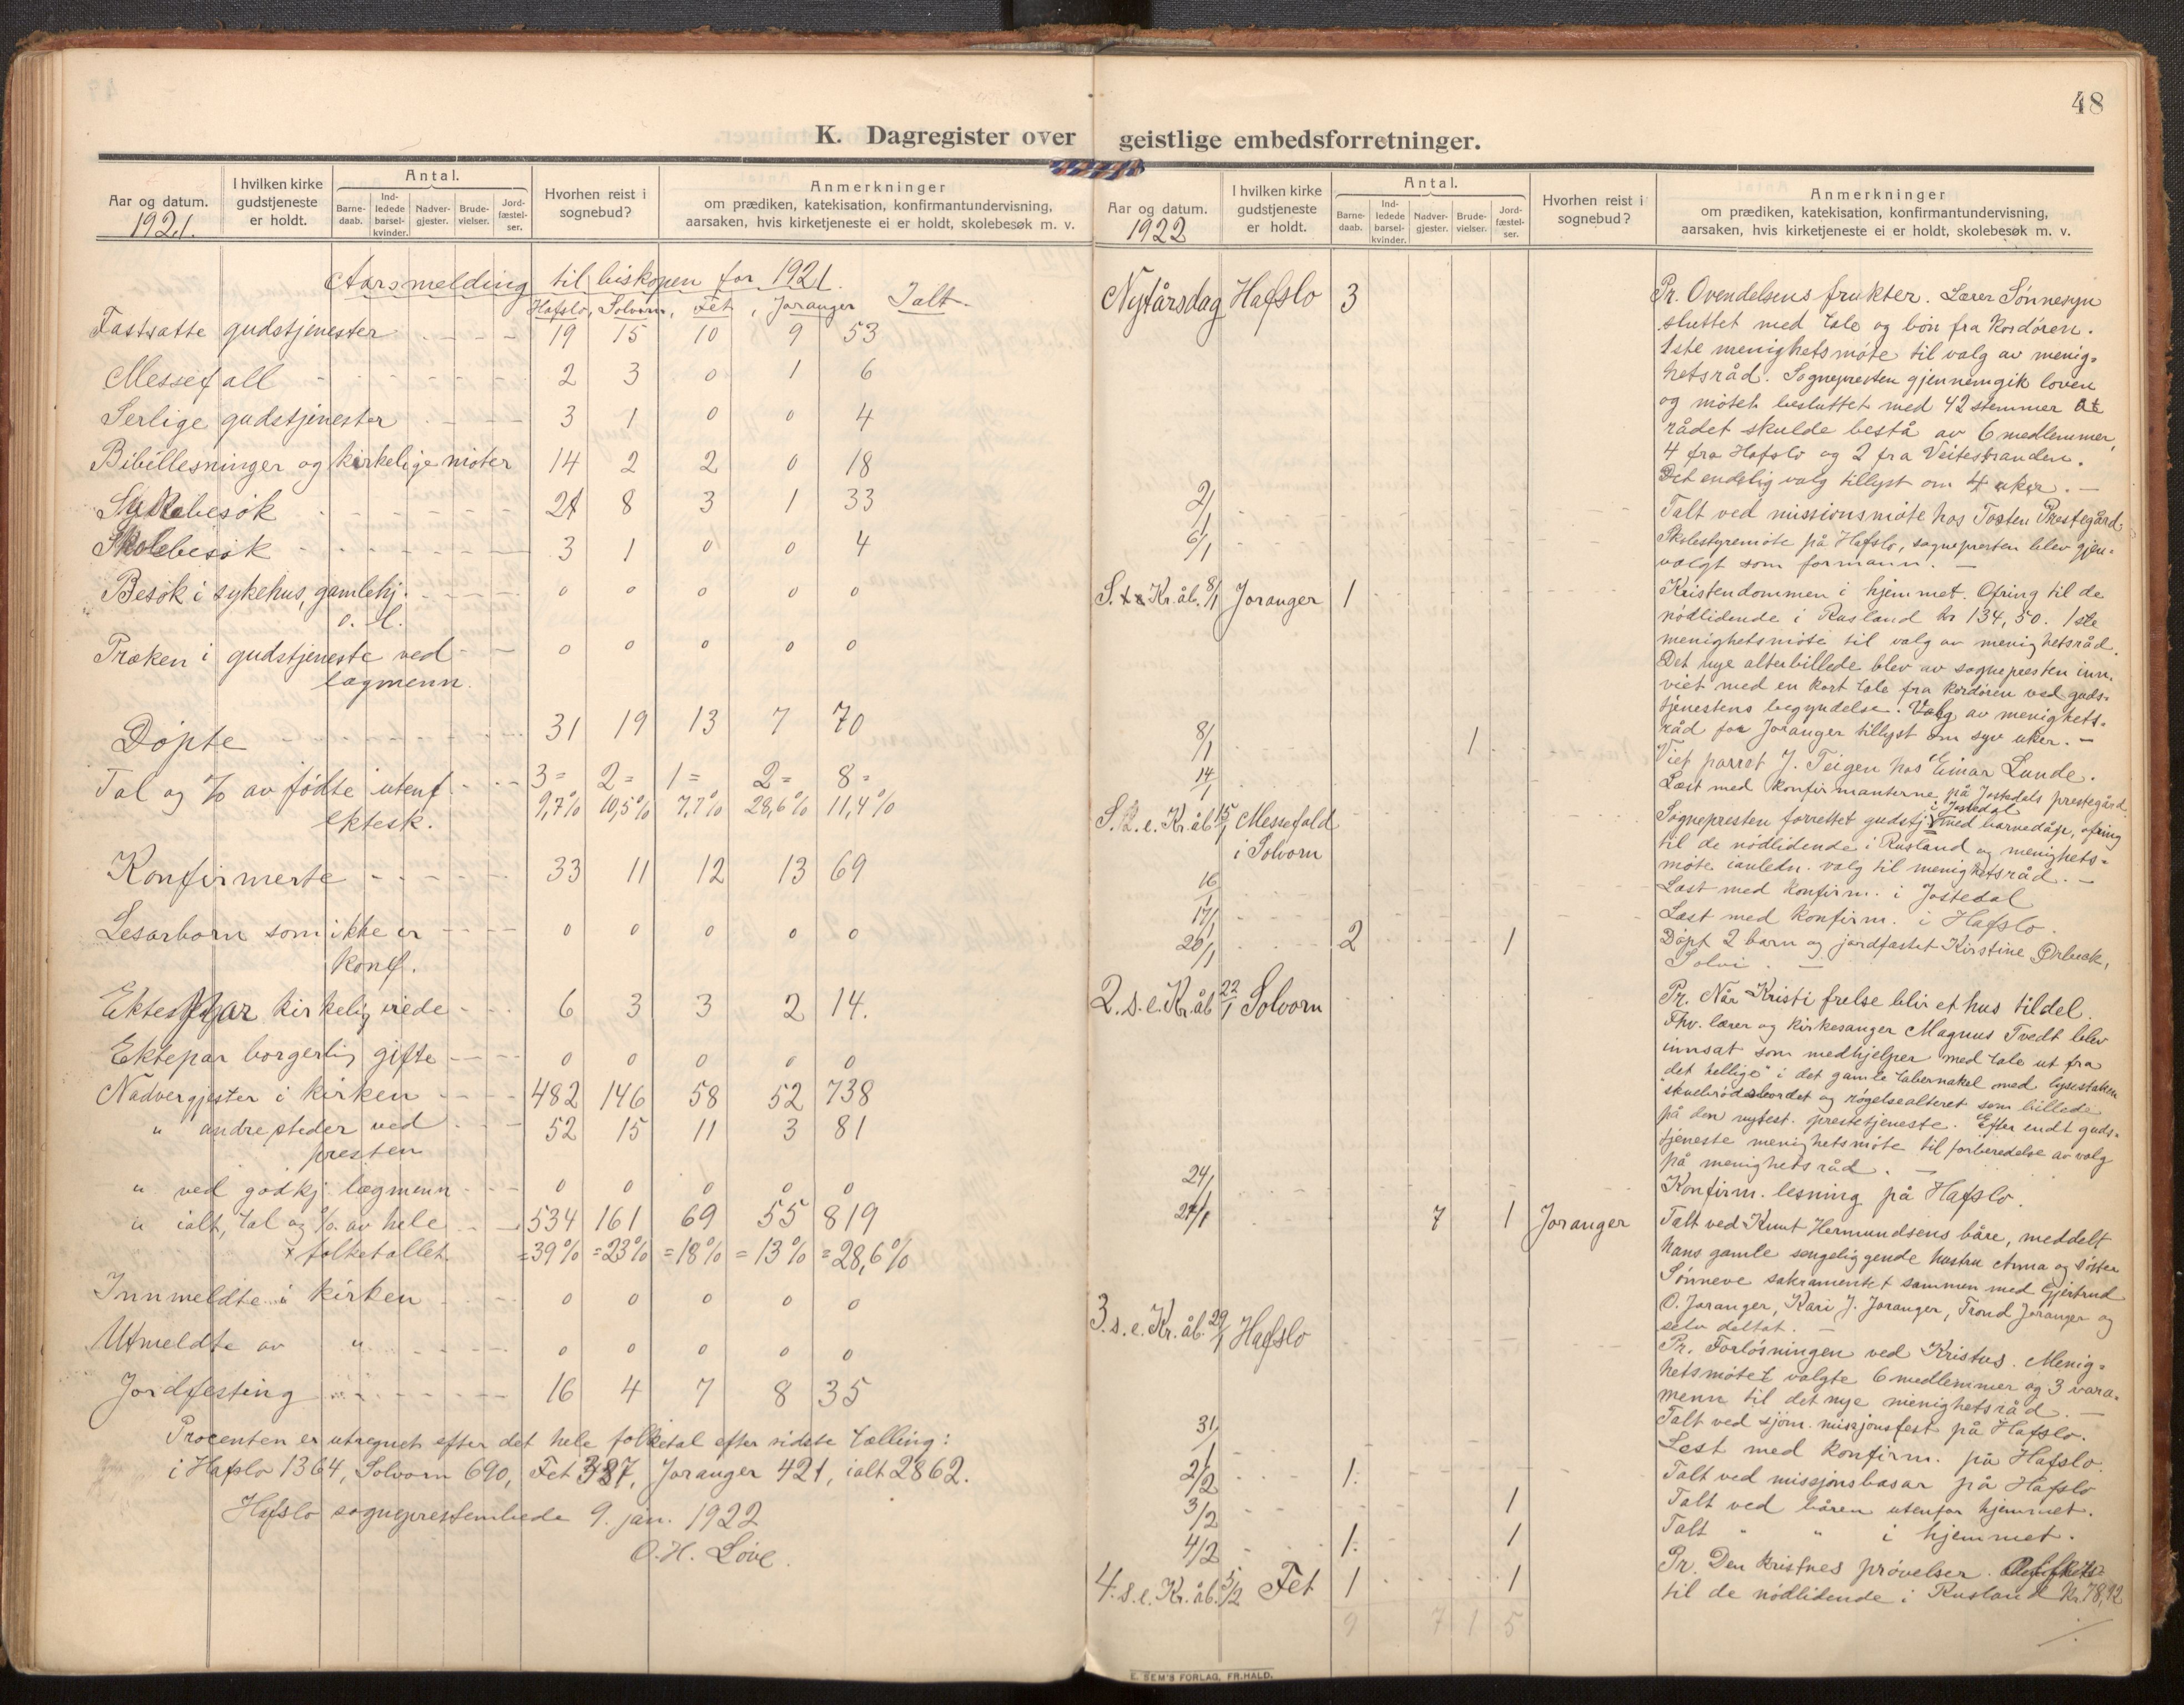 48
K. Dagregister over geistlige embedsforretninger.
Aar og datum.
1921.
I hvilken kirke gudstjeneste er holdt.
Antal.
Barnedaab.
Indledede barselkvinder.
Nadvergjester.
Brudevielser.
Jordfæstelser.
Hvorhen reist i sognebud?
Anmerkninger
om prædiken, katekisation, konfirmantundervisning,
aarsaken, hvis kirketjeneste ei er holdt, skolebesøk m. v.
Aarsmelding til biskopen for 1921.
Hafslo, Solvorn, Fet, Joranger Ialt.
Fastsatte gudstjenester 19 15 10 9 53
Messefall 2 3 0 1 6
Serlige gudstjenester 3 1 0 0 4
Bibellesninger og kirkelige møter 14 2 2 0 18
Sykebesøk 21 8 3 1 33
Skolebesøk 3 1 0 0 4
Besøk i sykehus, gamlehj. 0 0 0 0 0
o. l.
Præken i gudstjeneste ved 0 0 0 0 0
lægmenn.
Døpte 31 19 13 7 70
Tal og % av fødte utenf. 3= 2= 1= 2= 8=
ektesk. 9,7% 10,5% 7,7% 28,6% 11,4%
Konfirmerte 33 11 12 13 69
Lesarborn som ikke er 0 0 0 0 0
konf.
Ektepar kirkelig viede 6 3 3 2 14.
Ektepar borgerlig gifte 0 0 0 0 0
Nadvergjester i kirken 482 146 58 52 738
" andre steder ved 52 15 11 3 81
presten
" ved godkj. lægmenn 0 0 0 0 0
" ialt, tal og % av hele 534 161 69 55 819
folketallet =39% =23% =18% =13% =28,6%
Innmeldte i kirken 0 0 0 0 0
Utmeldte av " 0 0 0 0 0
Jordfesting 16 4 7 8 35
Procenten er utregnet efter det hele folketal efter sidste tælling:
i Hafslo 1364, Solvorn 690, Fet 387, Joranger 421, ialt 2862.
Hafslo sogneprestembede 9. jan. 1922
O. H. Løve.
Aar og datum.
1922
I hvilken kirke gudstjeneste er holdt.
Antal.
Barnedaab.
Indledede barselkvinder.
Nadvergjester.
Brudevielser.
Jordfæstelser.
Hvorhen reist i sognebud?
Anmerkninger
om prædiken, katekisation, konfirmantundervisning,
aarsaken, hvis kirketjeneste ei er holdt, skolebesøk m. v.
Nytårsdag Hafslo 3 Pr. Ovendelsens frukter. Lærer Sønnesyn
sluttet med tale og bøn fra kordøren.
1ste menighetsmøte til valg av menig-
hetsråd. Sognepresten gjennemgik loven
og møtet besluttet med 42 stemmer at
rådet skulde bestå av 6 medlemmer,
4 fra Hafslo og 2 fra Veitestranden.
Det endelig valg tillyst om 4 uker. –
2/1 Talt ved missionsmøte hos Torsten Prestegård.
6/1 Skolestyremøte på Hafslo, sognepresten blev gjen-
valgt som formann. –
S. e. Kr. åb. 8/1 Joranger 1 Kristendommen i hjemmet. Ofring til de
nødlidende i Rusland kr 134,50. 1ste
menighetsmøte til valg av menighetsråd.
Det nye alterbillede blev av sognepresten inn-
viet med en kort tale fra kordøren ved guds-
tjenestens begyndelse. Valg av menighets-
råd for Joranger tillyst om syv uker. –
8/1 1 Viet parret J. Teigen hos Einar Lunde.
14/1 Læst med konfirmanterne på Jostedals prestegård.
S. 1. e. Kr. åb. 15/1 Messefald i Solvorn Sognepresten forrettet gudstj. i Jostedal med barnedåp, ofring
til de nødlidende i Rusland og menighets-
møte i anledn. valg til menighetsråd. –
16/1 Læst med konfirm. i Jostedal
17/1 Læst med konfirm. i Hafslo.
20/1 2 1 Døpt 2 barn og jordfæstet Kirstine Ørbeck,
Solvi. –
2. s. e. Kr. åb. 22/1 Solvorn Pr. Når Kristi frelse blir et hus tildel.
Fhv. lærer og kirkesanger Magnus Tvedt blev
innsat som medhjelper med tale ut fra
"det hellige" i det gamle tabernakel med lysestaken
skuebrødsbordet og røgelsealteret som billede
på den nytest. prestetjeneste. Efter endt guds-
tjeneste menighetsmøte til forberedelse av valg
på menighetsråd. –
24/1 Konfirm. lesning på Hafslo.
27/1 7 1 Joranger Talt ved Knut Hermundsens båre, meddelt
hans gamle sengeliggende hustru Anna og søster
Sønneve sakramentet sammen med Gjertrud
O. Joranger, Kari J. Joranger, Trond Joranger og
selv deltat. –
3. s. e. Kr. åb. 29/1 Hafslo Pr. Forløsningen ved Kristus. Menig-
hetsmøtet valgte 6 medlemmer og 3 vara-
menn til det nye menighetsråd. –
Talt ved sjøm. misjonsfest på Hafslo.
31/1 Lest med konfirm. på Hafslo.
2/2 1. Talt ved missjonsbasar på Hafslo
3/2 1 Talt ved båren utenfor hjemmet.
4/2 1. 1 Talt " " i hjemmet.
4. s. e. Kr. åb. 5/2 Fet 1 1 Pr. Den kristnes prøvelser.
til de nødlidende i Rusland Kr. 78,12
9 7 1 5
E. SEM'S FORLAG, FR.HALD.